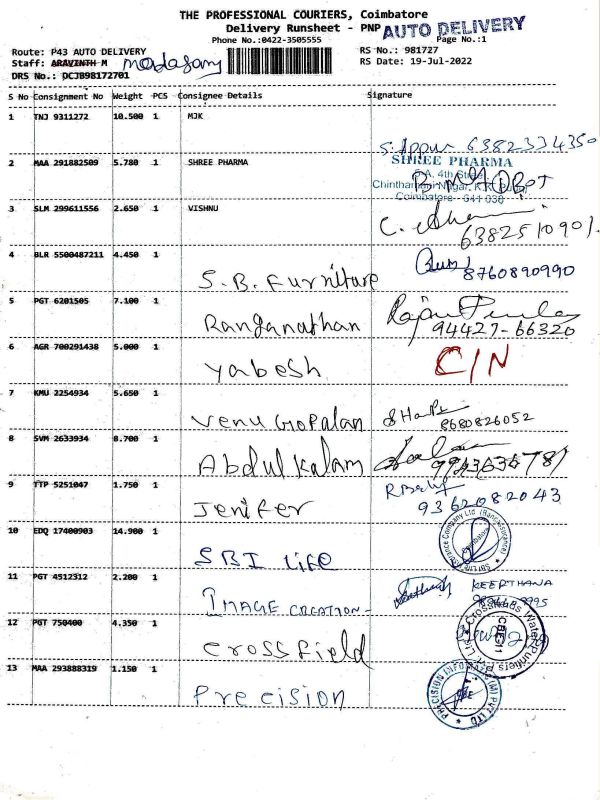 THE PROFESSIONAL COURIERS, Coimbatore
Delivery Runsheet - PNP
AUTO DELIVERY
Phone No.:0422-3505555
Page No.:1
Route: P43 AUTO DELIVERY
RS No.: 981727
Staff: ARAVINTH M madasamy
RS Date: 19-Jul-2022
DRS No.: DCJB98172701
S No Consignment No Weight PCS Consignee Details Signature
1 TNJ 9311272 10.500 1 MJK
S. Appu 6382334350
2 MAA 291882509 5.780 1 SHREE PHARMA
SHREE PHARMA
4th Street
Chinthamani Nagar, K.K. Pudur
Coimbatore - 641 038
3 SLM 299611556 2.650 1 VISHNU
6382510901
4 BLR 5500487211 4.450 1
S.B. Furniture
8760890990
5 PGT 6201505 7.100 1
Ranganathan
94427-66320
6 AGR 700291438 5.000 1
Yabesh
C/N
7 KMU 2254934 5.650 1
Venu Gopalan
8680826052
8 SVM 2633934 8.700 1
Abdul Kalam
9 TTP 5251047 1.750 1
Jenifer
9362082043
10 EDQ 17400903 14.900 1
SBI Life
11 PGT 4512312 2.200 1
IMAGE CREATION-
KEERTHANA
12 PGT 750400 4.350 1
Crossfield
CBE-11
13 MAA 293888319 1.150 1
Precision